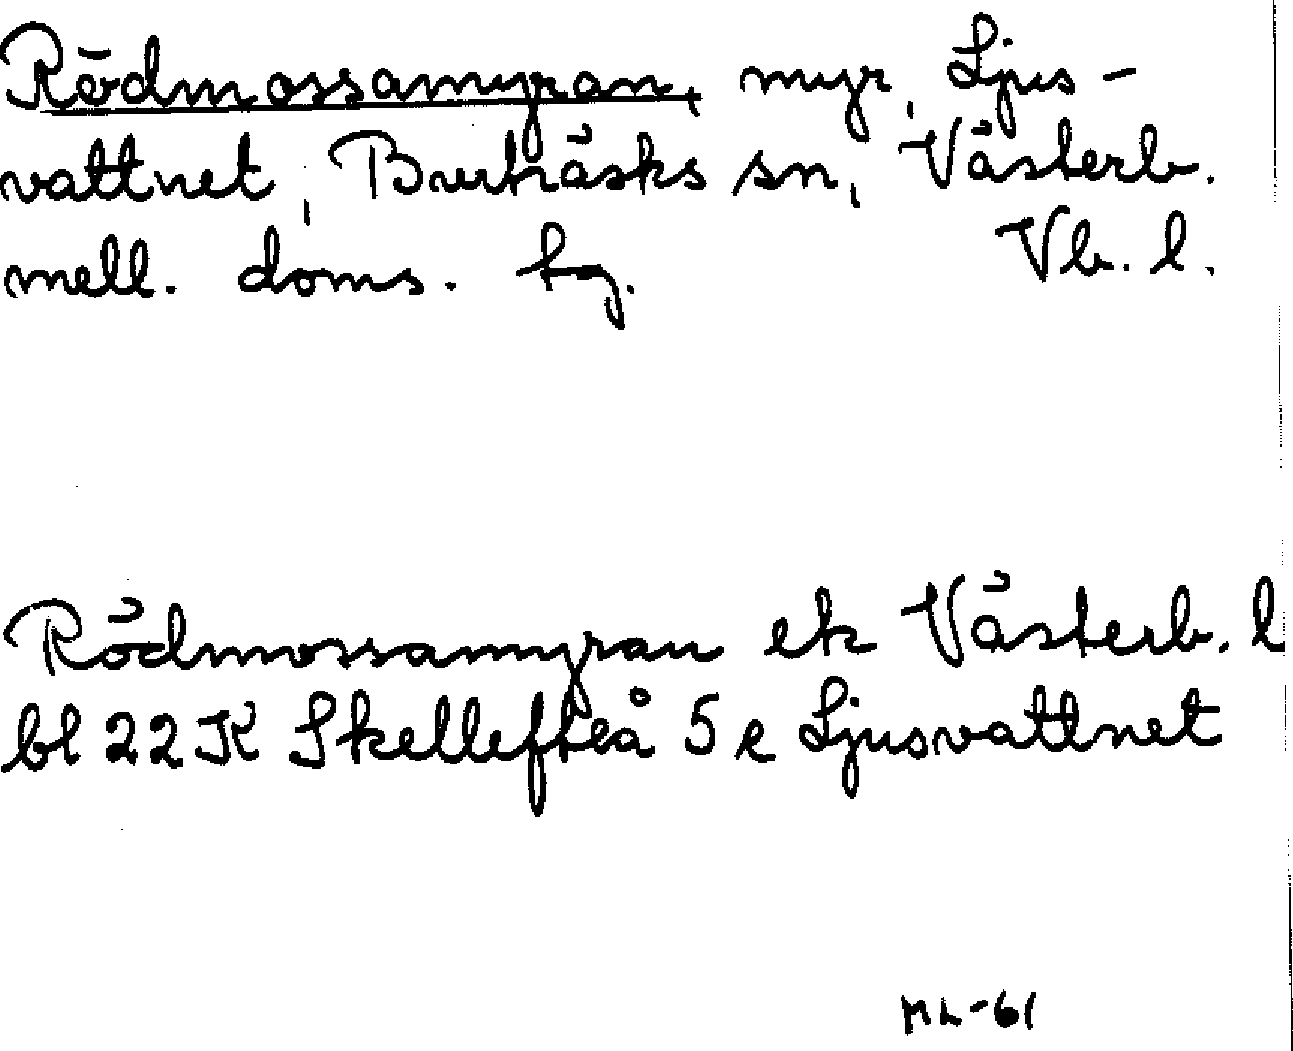 Rödmossamyran, myr, Ljus-
vattnet, Burträsks sn, Västerb.
mell. doms. tg. Vb. l.
Rödmossamyran ek Västerb. l
bl 22 K Skellefteå 5 e Ljusvattnet
ML-61